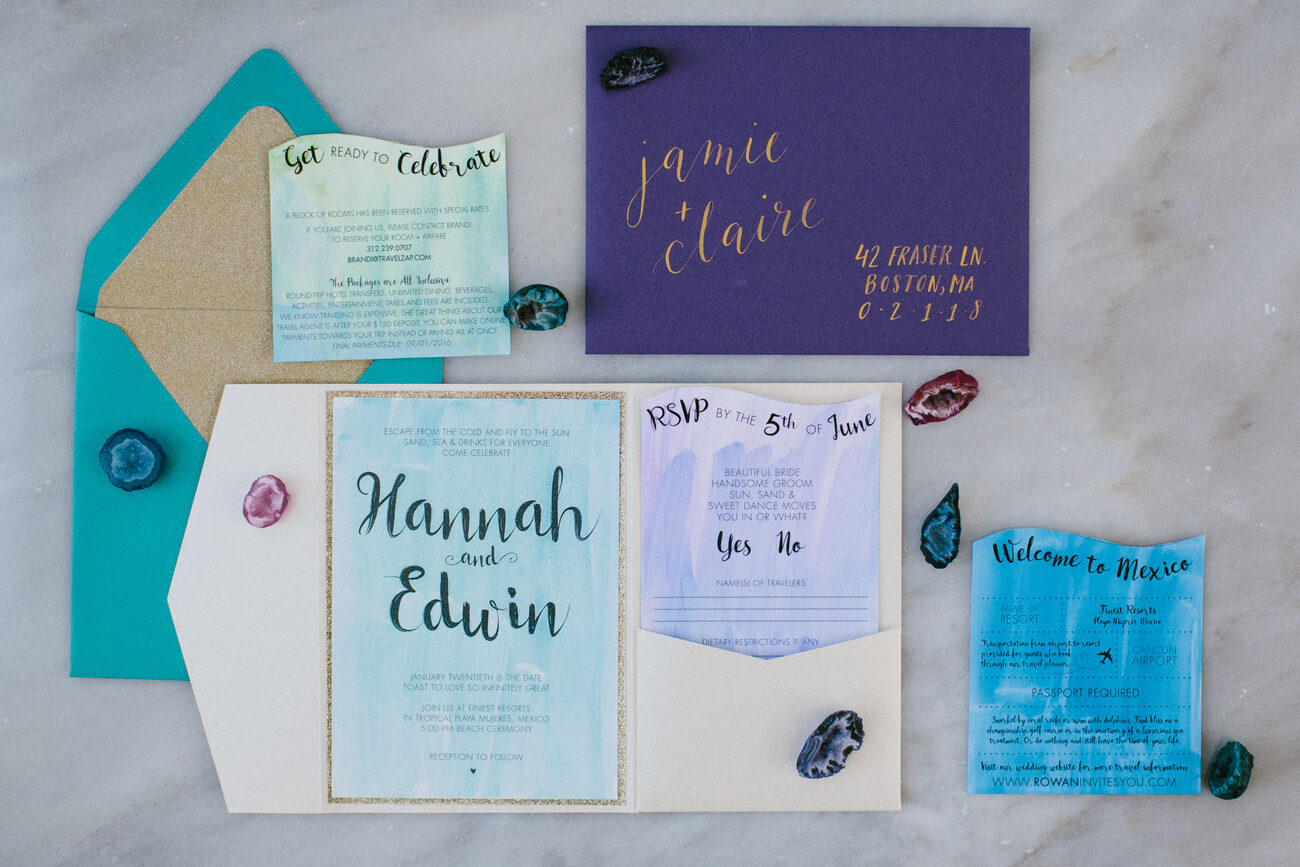 Get READY TO Celebrate
A BLOCK OF ROOMS HAS BEEN RESERVED WITH SPECIAL RATES
IF YOU ARE JOINING US, PLEASE CONTACT BRANDI
TO RESERVE YOUR ROOM + AIRFARE
312.239.0707
BRANDI@TRAVELZAP.COM
The Packages are All Inclusive
ROUNDTRIP HOTEL TRANSFERS, UNLIMITED DINING, BEVERAGES,
ACTIVITIES, ENTERTAINMENT, TAXES AND FEES ARE INCLUDED.
WE KNOW TRAVELING IS EXPENSIVE. THE GREAT THING ABOUT OUR
TRAVEL AGENT IS AFTER YOUR $150 DEPOSIT, YOU CAN MAKE ONLINE
PAYMENTS TOWARDS YOUR TRIP INSTEAD OF PAYING ALL AT ONCE.
FINAL PAYMENTS DUE: 09/01/2016
jamie
+
claire
42 FRASER LN.
BOSTON, MA
0·2·1·1·8
ESCAPE FROM THE COLD AND FLY TO THE SUN
SAND, SEA & DRINKS FOR EVERYONE
COME CELEBRATE
Hannah
and
Edwin
JANUARY TWENTIETH IS THE DATE
TOAST TO LOVE SO INFINITELY GREAT
JOIN US AT FINEST RESORTS
IN TROPICAL PLAYA MUJERES, MEXICO
5:00 PM BEACH CEREMONY
RECEPTION TO FOLLOW
RSVP BY THE 5th OF June
BEAUTIFUL BRIDE
HANDSOME GROOM
SUN, SAND &
SWEET DANCE MOVES
YOU IN OR WHAT?
Yes No
NAME(S) OF TRAVELERS
DIETARY RESTRICTIONS IF ANY
Welcome to Mexico
NAME OF
RESORT
Finest Resorts
Playa Mujeres, Mexico
Transportation from airport to resort
provided for guests who book
through our travel planner
CANCUN
AIRPORT
PASSPORT REQUIRED
Snorkel by coral reefs or swim with dolphins. Find bliss on a
championship golf course or in the sanctuary of a luxurious spa
treatment. Or do nothing and still have the time of your life.
Visit our wedding website for more travel information
WWW.ROWANINVITESYOU.COM